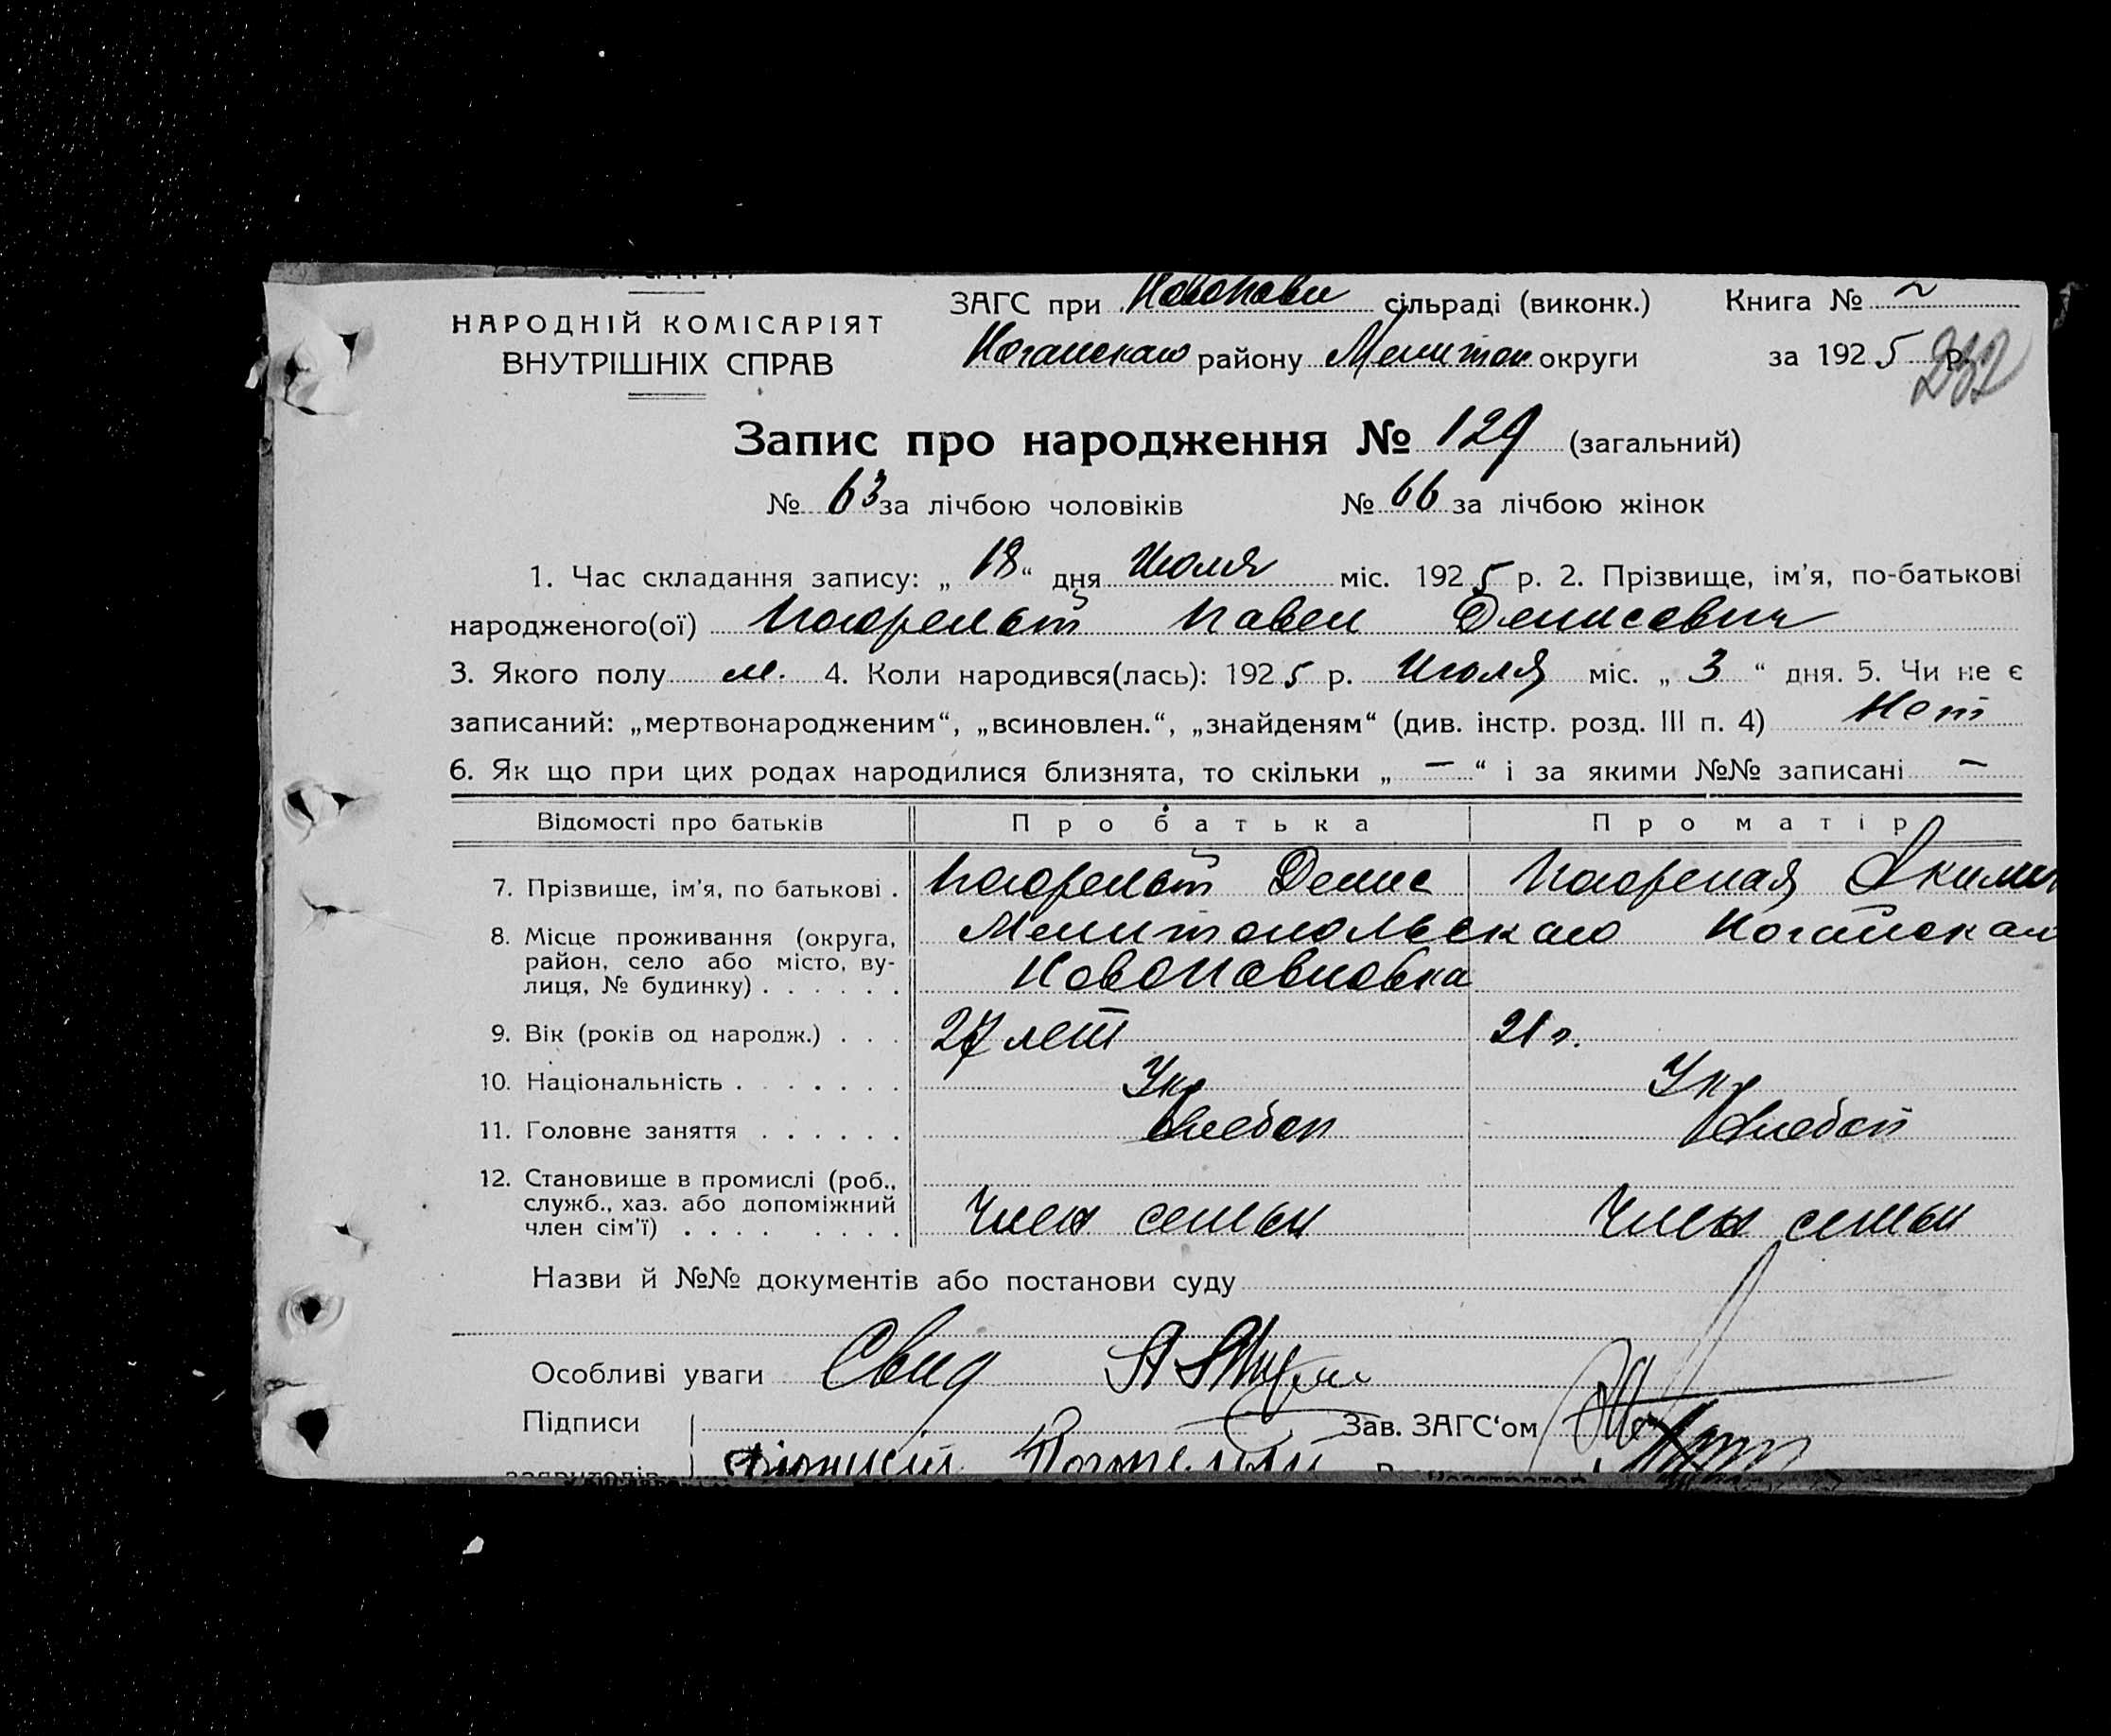 ЗАГС при Новопавл сільраді (виконк.) Книга № 2
НАРОДНІЙ КОМІСАРІЯТ
ВНУТРІШНІХ СПРАВ
Ногайскаго району Мелитоп округи за 1925 р.
232
Запис про народження № 129 (загальний)
№ 63 за лічбою чоловіків № 66 за лічбою жінок
1. Час складання запису: „18“ дня Июля міс. 1925 р. 2. Прізвище, ім’я, по-батькові
народженого(ої) Погорелый Павел Денисович
3. Якого полу м. 4. Коли народився(лась): 1925 р. Июля міс. „3“ дня. 5. Чи не є
записаний: „мертвонародженим“, „всиновлен.“, „знайденям“ (див. інстр. розд. III п. 4) Нет
6. Як що при цих родах народилися близнята, то скільки „—“ і за якими №№ записані —
Відомості про батьків Про батька Про матір
7. Прізвище, ім’я, по батькові . Погорелый Денис Погорелая Акилин
8. Місце проживання (округа, Мелитопольскаго Ногайскаго
район, село або місто, ву-
лиця, № будинку) . . . . . . Новопавловка
9. Вік (років од народж.) . . . 27 лет 21 г.
10. Національність . . . . . . . Укр Укр
11. Головне заняття . . . . . . Хлебоп Хлебоп
12. Становище в промислі (роб.,
служб., хаз. або допоміжний
член сім’ї) . . . . . . . . Член семьи Член семьи
Назви й №№ документів або постанови суду
Особливі уваги Свид
Підписи Зав. ЗАГС‘ом
заявителів